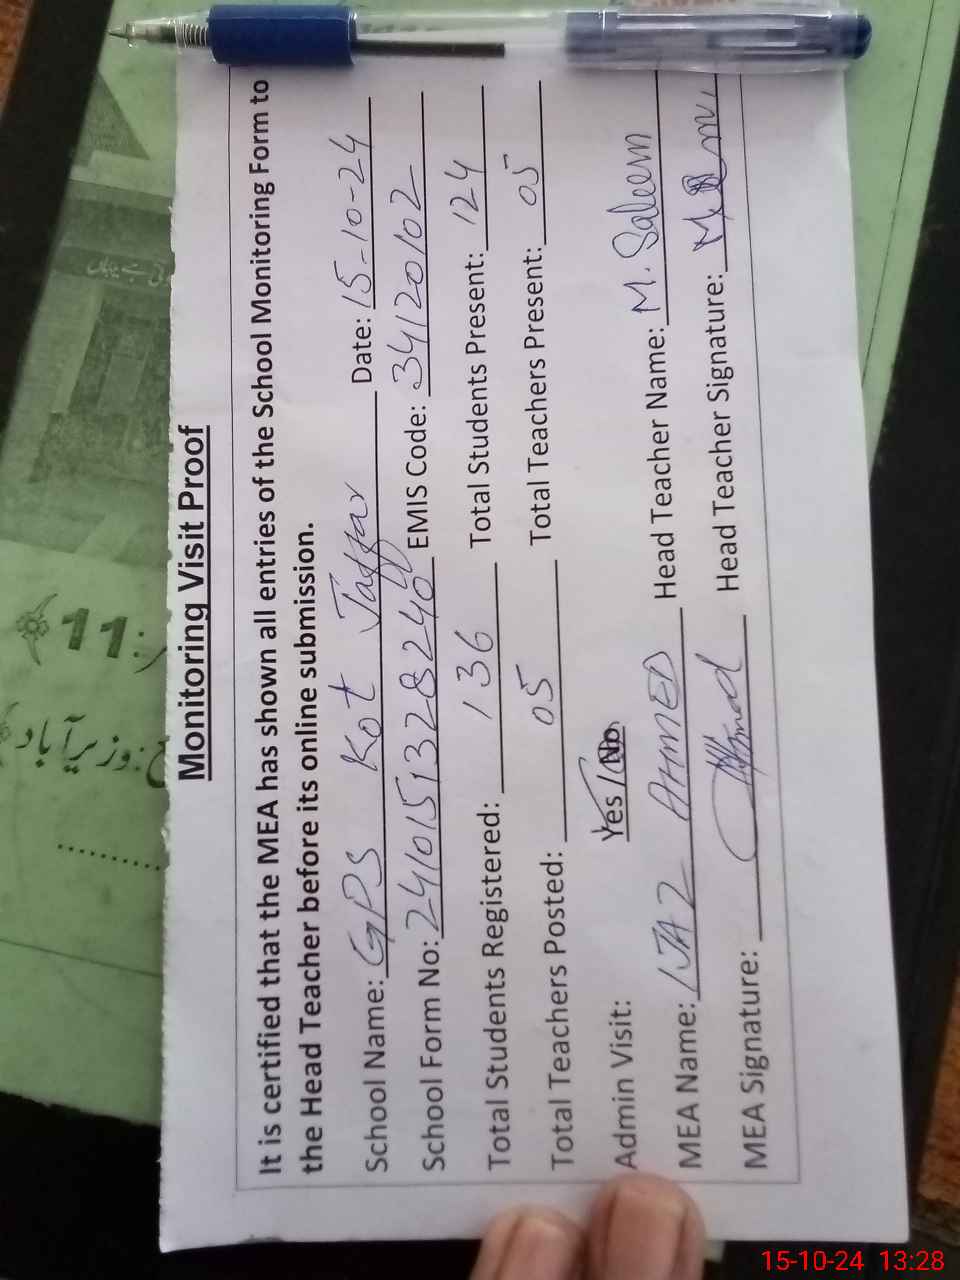 Monitoring Visit Proof
It is certified that the MEA has shown all entries of the School Monitoring Form to
the Head Teacher before its online submission.
School Name: GPS Kot Jaffar Date: 15-10-24
School Form No: 241015132824 EMIS Code: 34120102
Total Students Registered: 136 Total Students Present: 124
Total Teachers Posted: 05 Total Teachers Present: 05
Admin Visit: Yes / No
MEA Name: IJAZ AHMED Head Teacher Name: M. Saleem
MEA Signature: Ahmad Head Teacher Signature:
11:
وزیرآباد
15-10-24 13:28